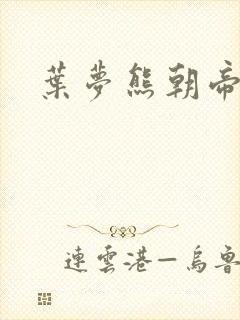 葉夢熊朝帝
連雲港—烏魯